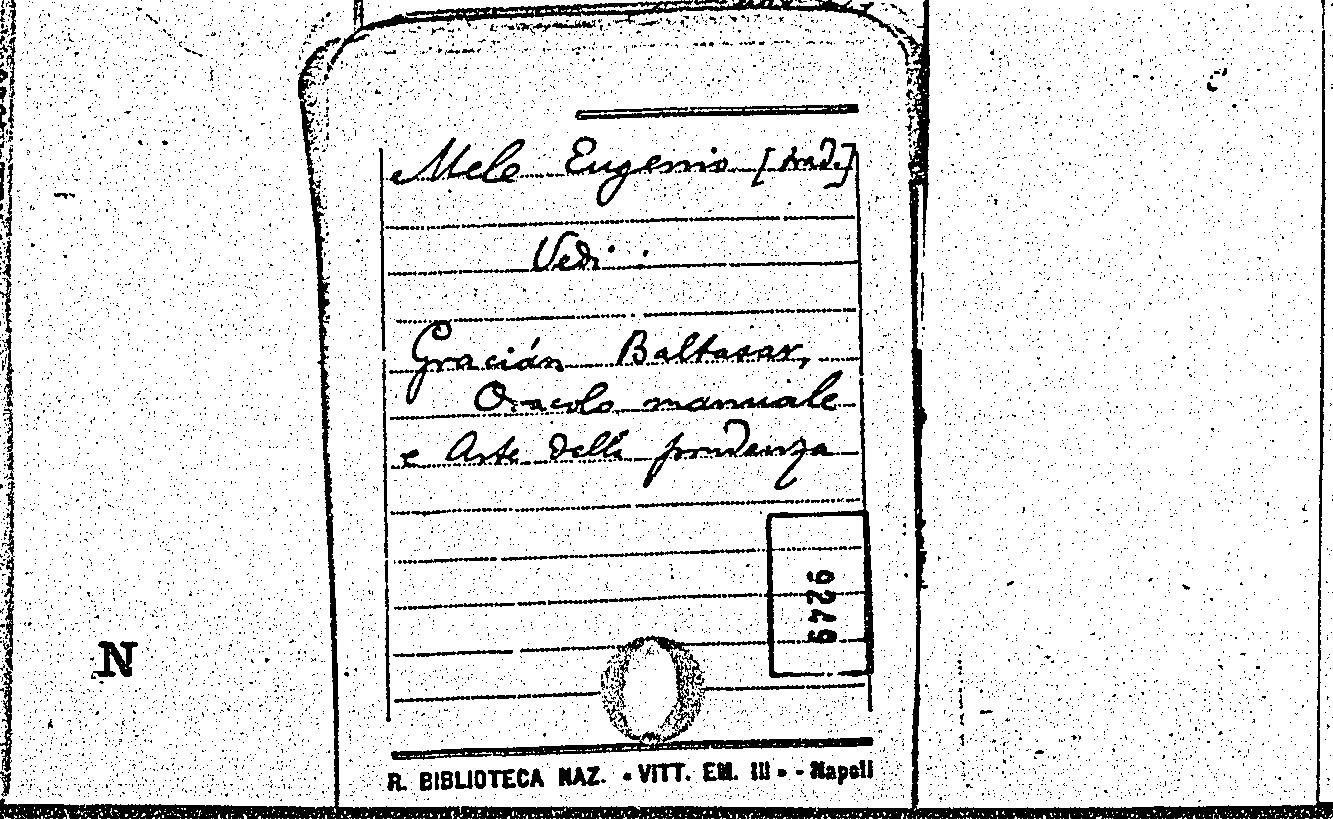 Mele Eugenio [trad.]
Vedi:
Gracián Baltasar,
Oracolo manuale
e Arte della prudenza
9249
N
R. BIBLIOTECA NAZ. • VITT. EM. III • - Napoli